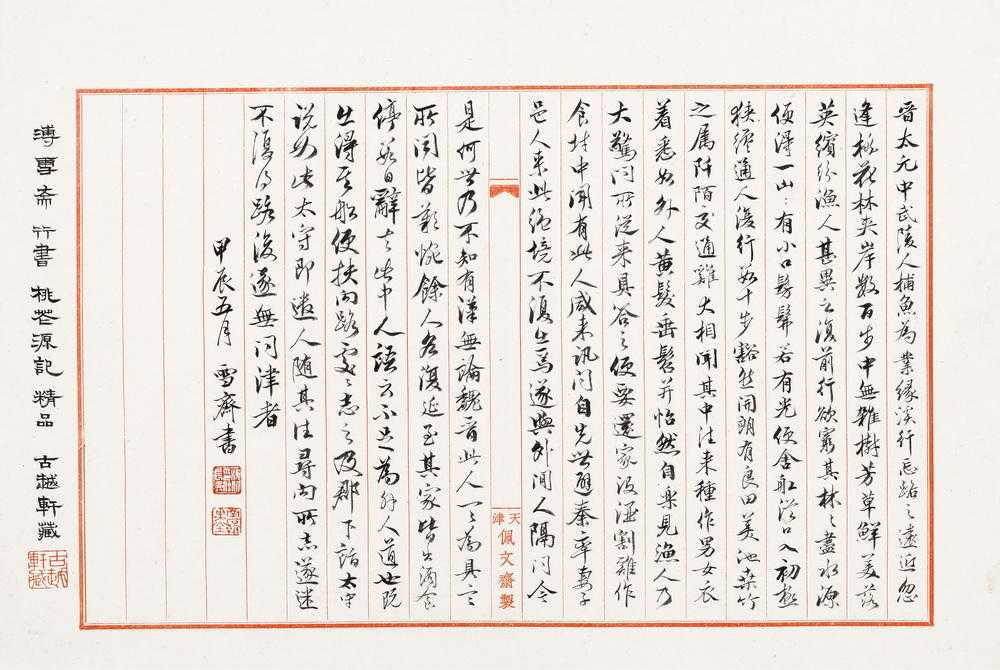 晉太元中武陵人捕魚為業緣溪行忘路之遠近忽
逢桃花林夾岸數百步中無雜樹芳草鮮美落
英繽紛漁人甚異之復前行欲窮其林〻盡水源
便得一山〻有小口髣髴若有光便舍船從口入初極
狹纔通人復行數十步豁然開朗有良田美池桑竹
之屬阡陌交通雞犬相聞其中往來種作男女衣
着悉如外人黃髮垂髫并怡然自樂見漁人乃
大驚問所從來具答之便要還家設酒割雞作
食村中聞有此人咸來訊問自先世避秦率妻子
邑人來此絕境不復出焉遂與外間人隔問今
天津
佩文齋製
是何世乃不知有漢無論魏晉此人一〻為具言
所聞皆歎惋餘人各復延至其家皆出酒食
停數日辭去此中人語云不足為外人道也既
出得其船便扶向路處〻志之及郡下詣太守
說如此太守即遣人隨其往尋向所志遂迷
不復得路後遂無問津者
甲辰五月 雪齋書
溥雪斋 行書 桃花源記 精品 古越軒藏
古越軒藏